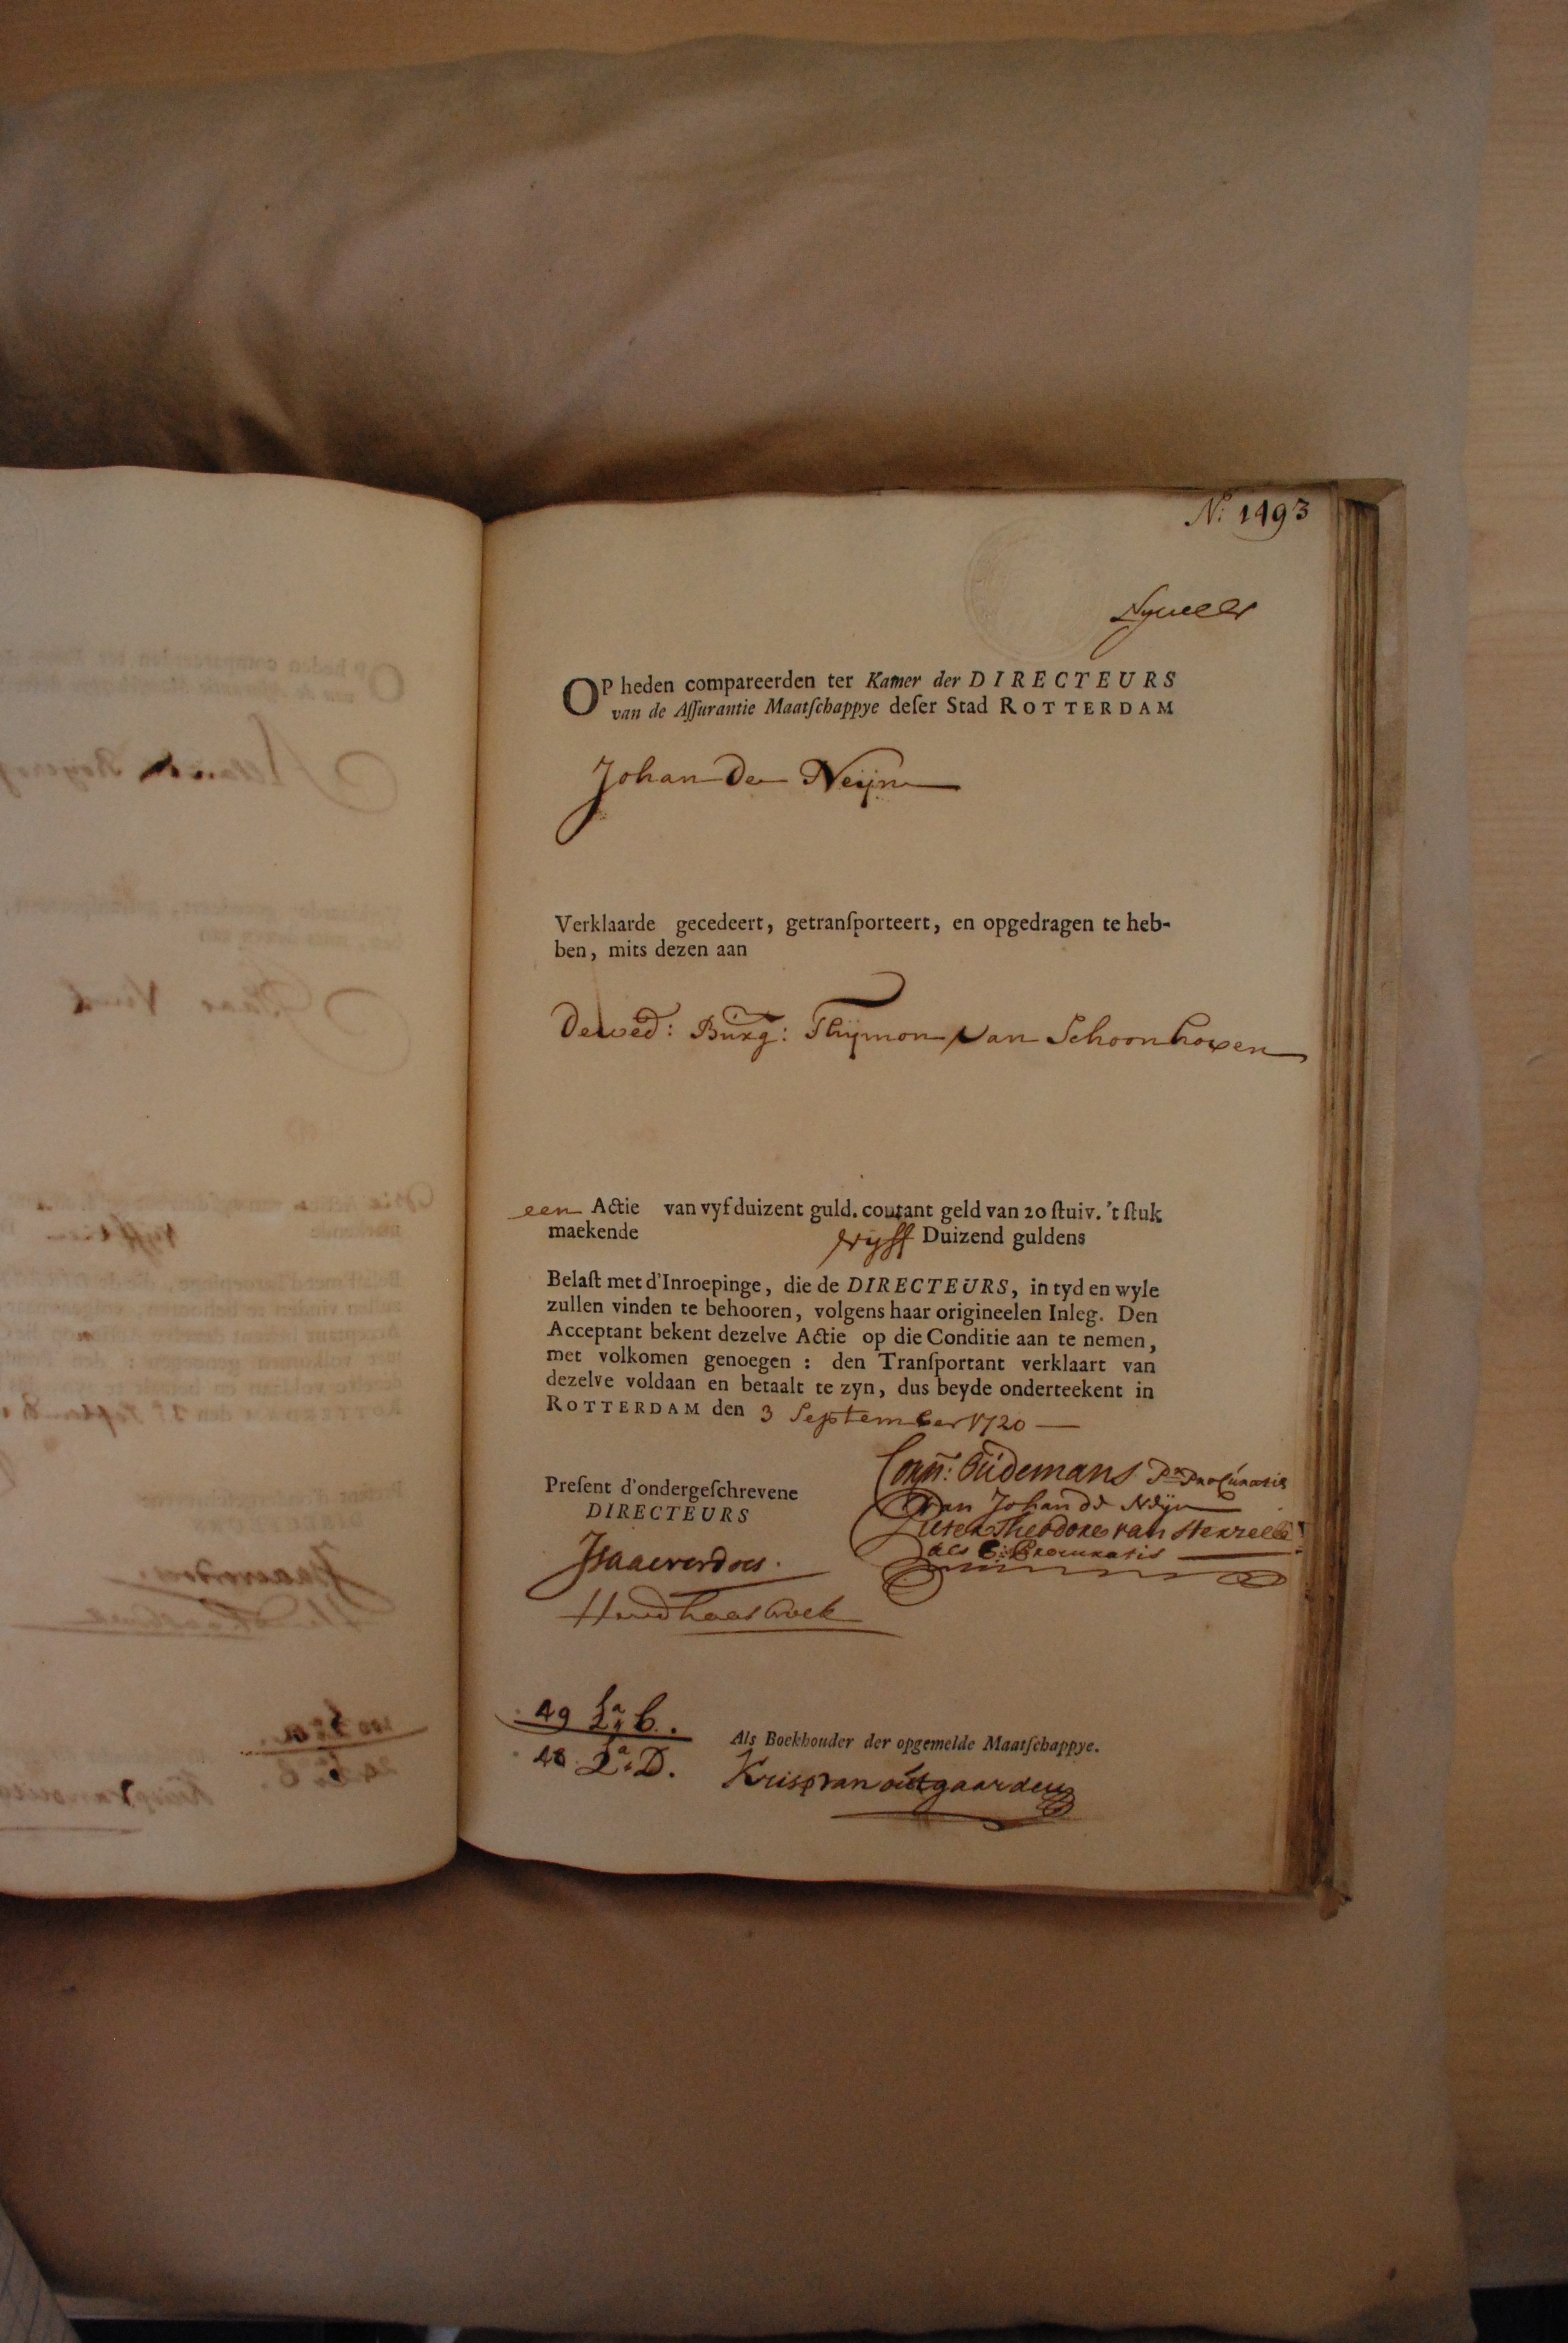 No: 1493
OP heden compareerden ter Kamer der DIRECTEURS
van de Aſſurantie Maatſchappye deſer Stad ROTTERDAM
Johan De Neijn
Verklaarde gecedeert, getranſporteert, en opgedragen te heb-
ben, mits dezen aan
De wed: Burg: Thijmon van Schoonhoven
een Actie van vyf duizent guld. courant geld van 20 ſtuiv. 't ſtuk
maekende vyff Duizend guldens
Belaſt met d'Inroepinge, die de DIRECTEURS, in tyd en wyle
zullen vinden te behooren, volgens haar origineelen Inleg. Den
Acceptant bekent dezelve Actie op die Conditie aan te nemen,
met volkomen genoegen : den Tranſportant verklaart van
dezelve voldaan en betaalt te zyn, dus beyde onderteekent in
ROTTERDAM den 3 September 1720
Corn: Oudemans Pr Procuratie
van Johan de Neijn
Pieter Theodore van
als P: Procuratie
Preſent d'ondergeſchrevene
DIRECTEURS
Isaac verdoes
49 La: C.
48 La: D.
Als Boekhouder der opgemelde Maatſchappye.
Krisp van outgaarden